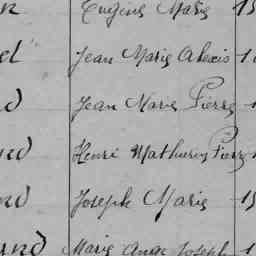 Eugène Marie 1
el Jean Marie Alexis 1
d Jean Marie Pierre
nd Henri Mathurin Pierre
nd Joseph Marie 1
rnd Marie Ange Joseph 1